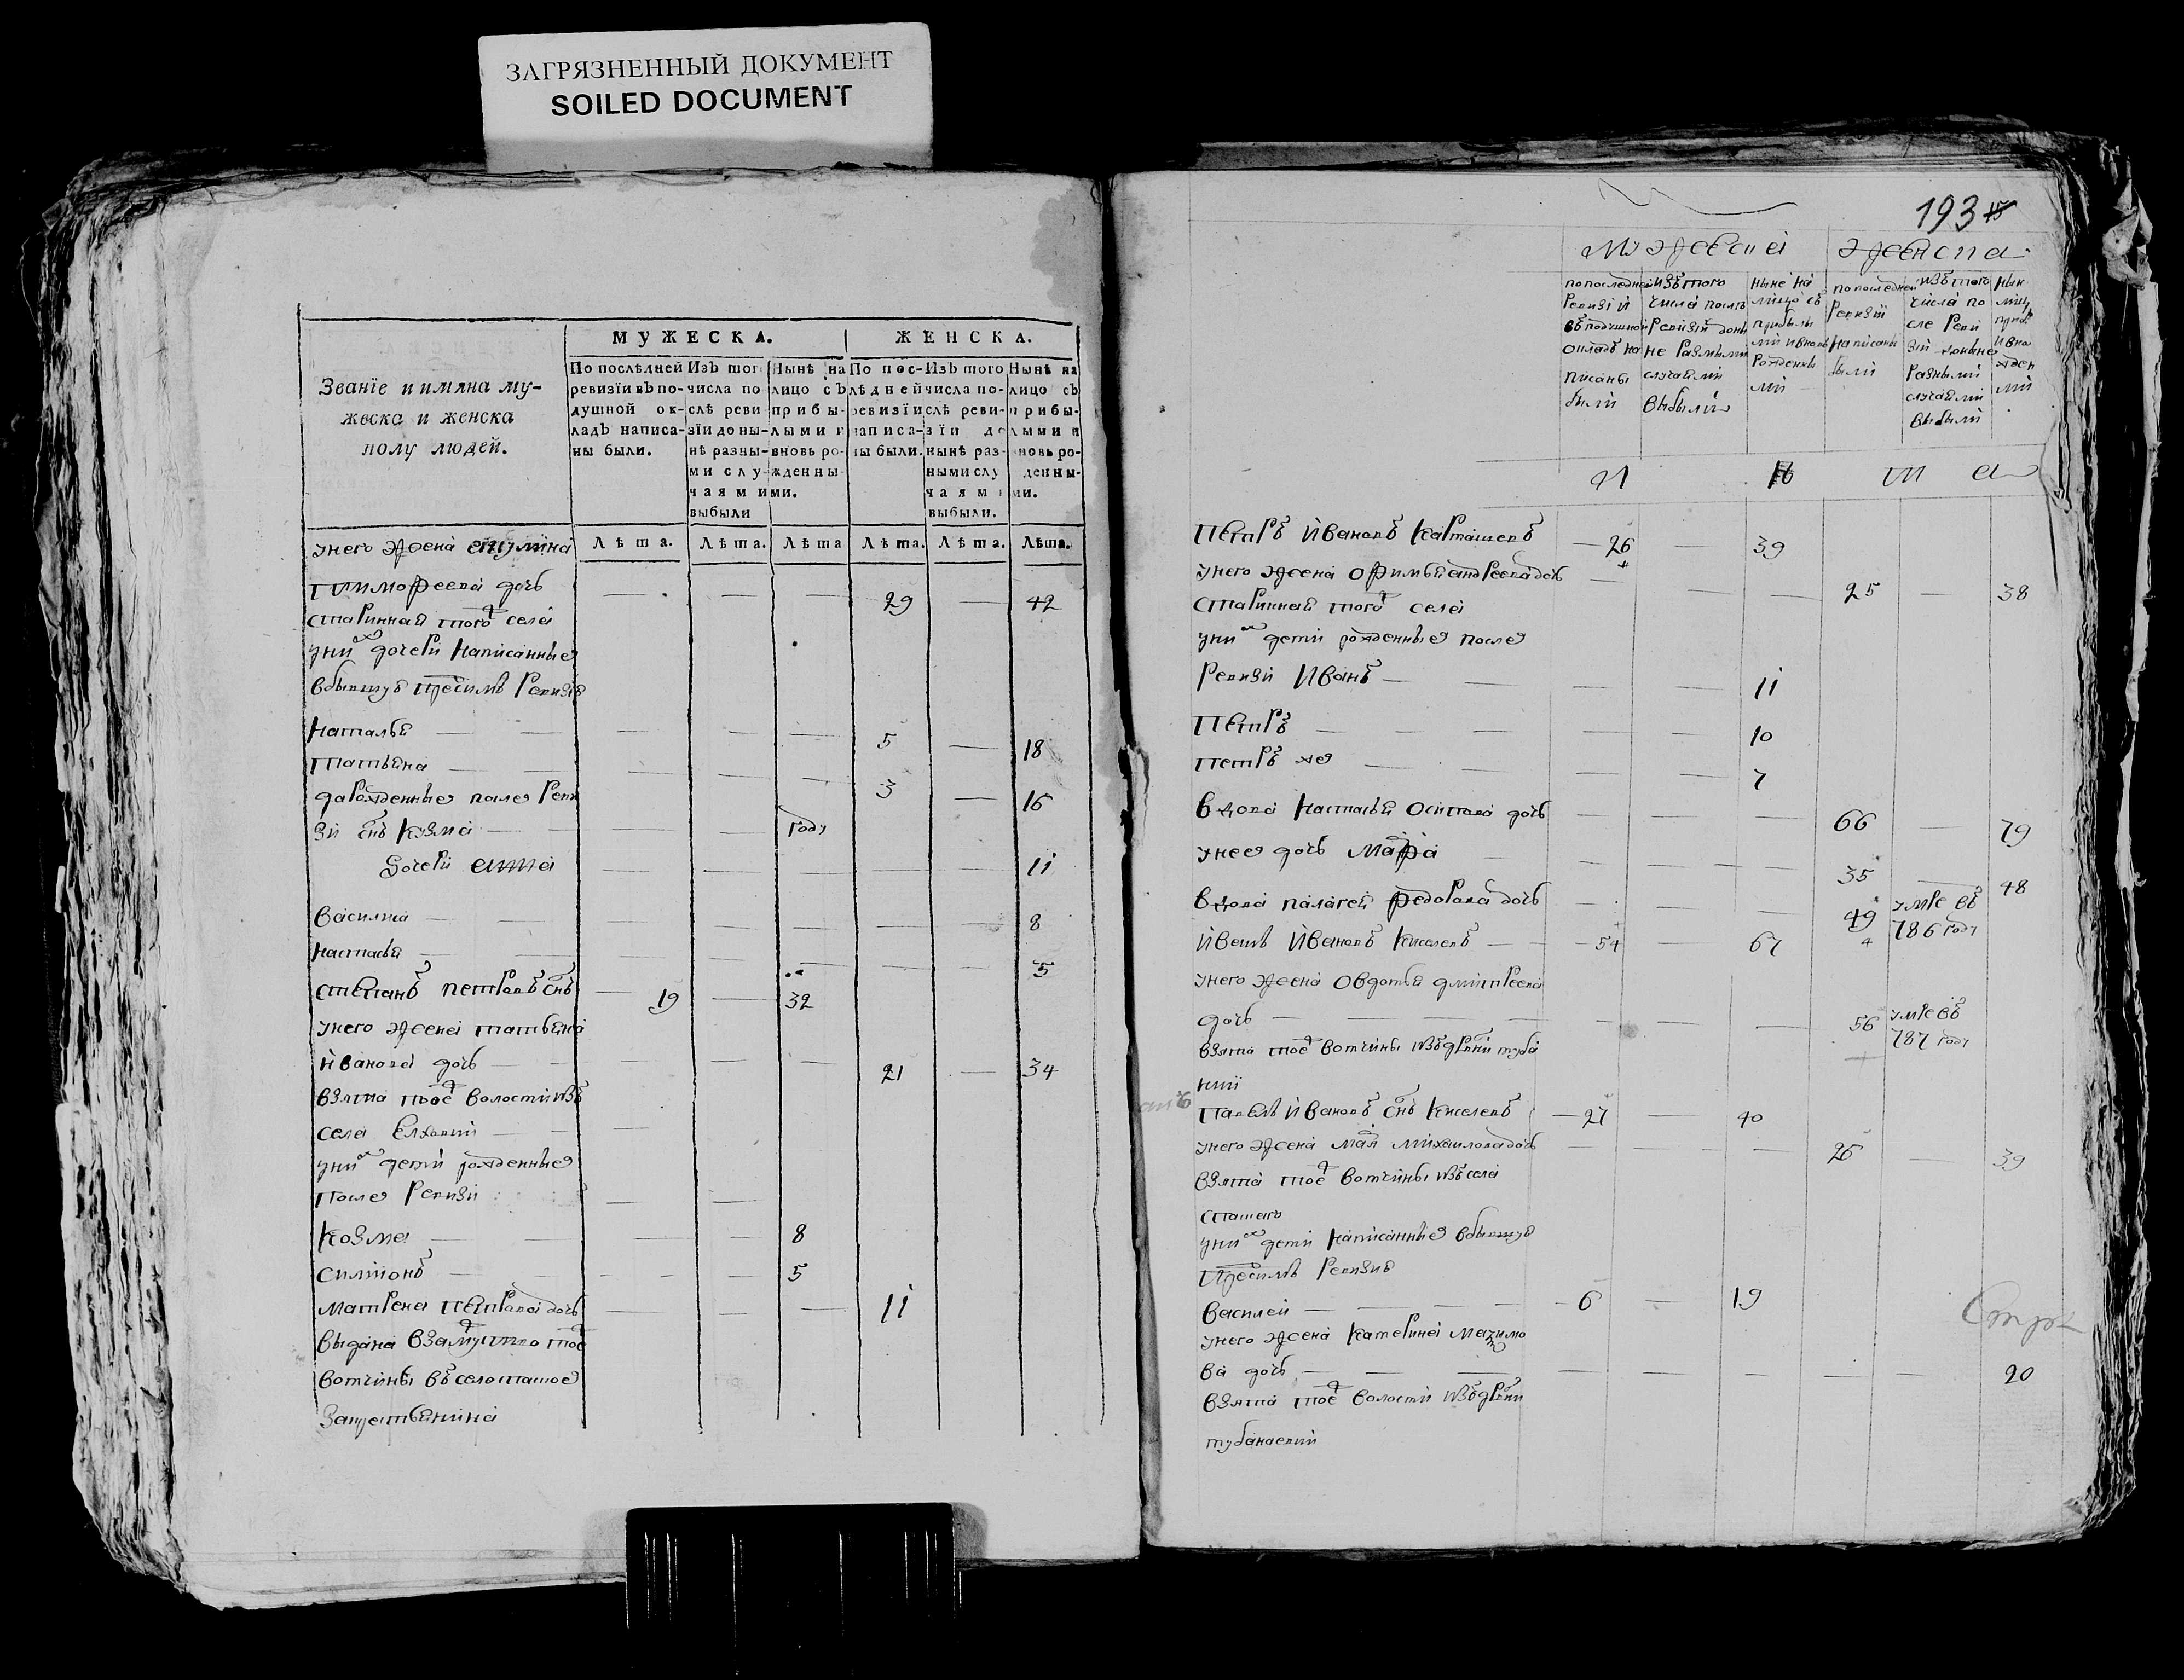 ЗАГРЯЗНЕННЫЙ ДОКУМЕНТ
SOILED DOCUMENT
Званїе и имяна му-
жеска и женска
полу людей.
МУЖЕСКА.
ЖЕНСКА.
По послѣдней
ревизїи въ по-
душной ок-
ладъ написа-
ны были.
Изъ того
числа по
слѣ реви
зїи до ны-
нѣ разны-
ми слу-
чаями
выбыли
Нынѣ на
лицо съ
прибы-
лыми и
вновь ро-
жденны-
ми.
По пос-
лѣдней
ревизїи
написа-
ны были.
Изъ того
числа по-
слѣ реви-
зїи до
нынѣ раз-
ными слу
чаями
выбыли.
Нынѣ на
лицо съ
прибы-
лыми и
вновь ро-
денны-
ми.
Лѣта. Лѣта. Лѣта Лѣта. Лѣта. Лѣта.
унего жена
тимофеева дочь 29 42
старинная того ж села
уних дочери написанные
вбывшую пред симъ ревизию
Наталья 5 18
татьяна 3 16
да рожденные после реви
зи снъ кузма году
дочери анна 11
василиса 8
настасья 5
степанъ петровъ снъ 19 32
унего жена татьяна
ивановa дочь 21 34
взята тоеж волости изъ
села Елховки
уних дети рожденные
после ревизи
козма 8
симионъ 5
матрена петрова дочь 11
выдана взамужство тоеж
вотчины въ село
193
мужеска женска
попоследней
ревизiи
въ подушной
окладъ на
писаны
были
изъ того
числа послѣ
ревизiи доны
не разными
случаями
выбыли
ныне на
лицо съ
прибылы
ми ивновь
рожденны
ми
попоследней
ревизiи
написаны
были
изъ того
числа по
сле реви
зiи доныне
разными
случаями
выбыли
Л ѣ т а
Петръ Ивановъ Карташевъ 26 39
унего жена офимья андреева дочь 25 38
старинная того ж села
уних дети рожденные после
ревизи Иванъ 11
Петръ 10
петръ же 7
вдова настасья осипова дочь 66 79
унее дочь марфа 35 48
вдова палагея федорова дочь 49 умре въ 786 году
Ивань Ивановъ Киселевъ 54 67
унего жена овдотья дмитреева
дочь 56 умре въ 787 году
взята тоеж вотчины изъ дрвни
Павелъ Ивановъ снъ Киселевъ 27 40
унего жена михаилова дочь 26 39
взята тоеж вотчины изъ села
уних дети написанные вбывшую
пред симъ ревизию
василей 6 19
унего жена катерина
ва дочь 20
взята тоеж волости изъ дрвни
тубанаевки